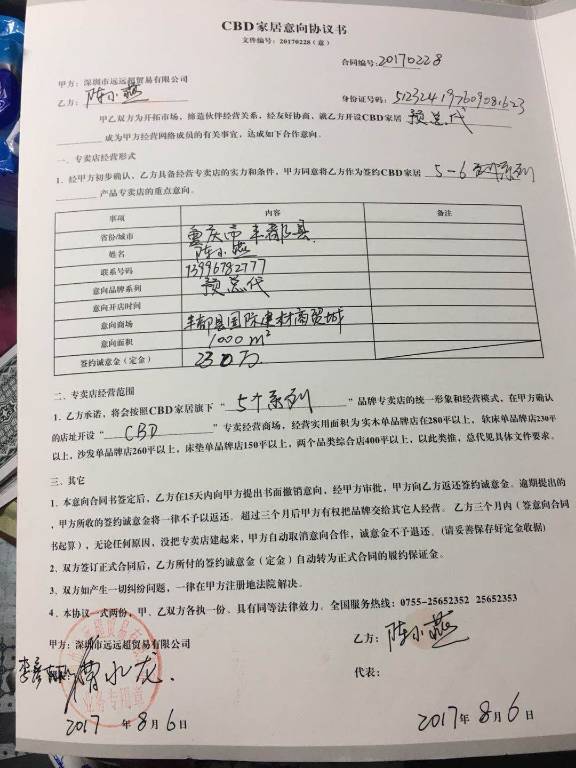 CBD家居意向协议书
文件编号：20170228（意）
合同编号：20170228
甲方：深圳市远远超贸易有限公司
乙方：陈小燕
身份证号码：512324197609081623
甲乙双方为开拓市场，缔造伙伴经营关系，经友好协商，就乙方开设CBD家居 预总代
成为甲方经营网络成员的有关事宜，达成如下合作意向。
一、专卖店经营形式
1、经甲方初步确认，乙方具备经营专卖店的实力和条件，甲方同意将乙方作为签约CBD家居 5-6 系列
产品专卖店的重点意向。
事项 内容 备注
省份/城市 重庆市丰都县
姓名 陈小燕
联系号码 13996782777
意向品牌系列 预总代
意向开店时间
意向商场 丰都县国际建材商贸城
意向面积 1000m²
签约诚意金（定金） 230万
二、专卖店经营范围
1、乙方承诺，将会按照CBD家居旗下“ 5个系列 ”品牌专卖店的统一形象和经营模式，在甲方确认
的店址开设“ CBD ”专卖经营商场，经营实用面积为实木单品牌店在280平以上，软床单品牌店230平
以上，沙发单品牌店260平以上，床垫单品牌店150平以上，两个品类综合店400平以上，以此类推，总代见具体文件要求。
三、其它
1、本意向合同书签定后，乙方在15天内向甲方提出书面撤销意向，经甲方审批，甲方向乙方返还签约诚意金。逾期提出的
，甲方所收的签约诚意金将一律不予以返还。超过三个月后甲方有权把品牌交给其它人经营。 乙方三个月内（签意向合同
书起算），无论任何原因，没把专卖店建起来，甲方自动取消意向合作，诚意金不予退还。(请妥善保存好定金收据)
2、双方签订正式合同后，乙方所付的签约诚意金（定金）自动转为正式合同的履约保证金。
3、双方如产生一切纠纷问题，一律在甲方注册地法院解决。
4、本协议一式两份，甲、乙双方各执一份。具有同等法律效力。全国服务热线：0755-25652352 25652353
甲方：深圳市远远超贸易有限公司
乙方：陈小燕
代表：
业务专用章
2017 年 8 月 6 日
2017 年 8 月 6 日